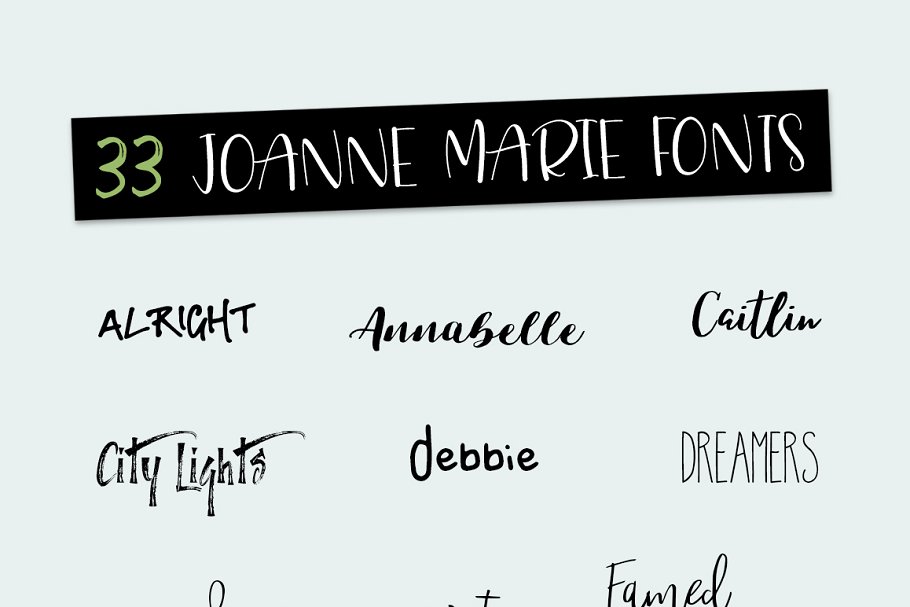 33 JOANNE MARIE FONTS
ALRIGHT Annabelle Caitlin
City Lights debbie DREAMERS
Famed